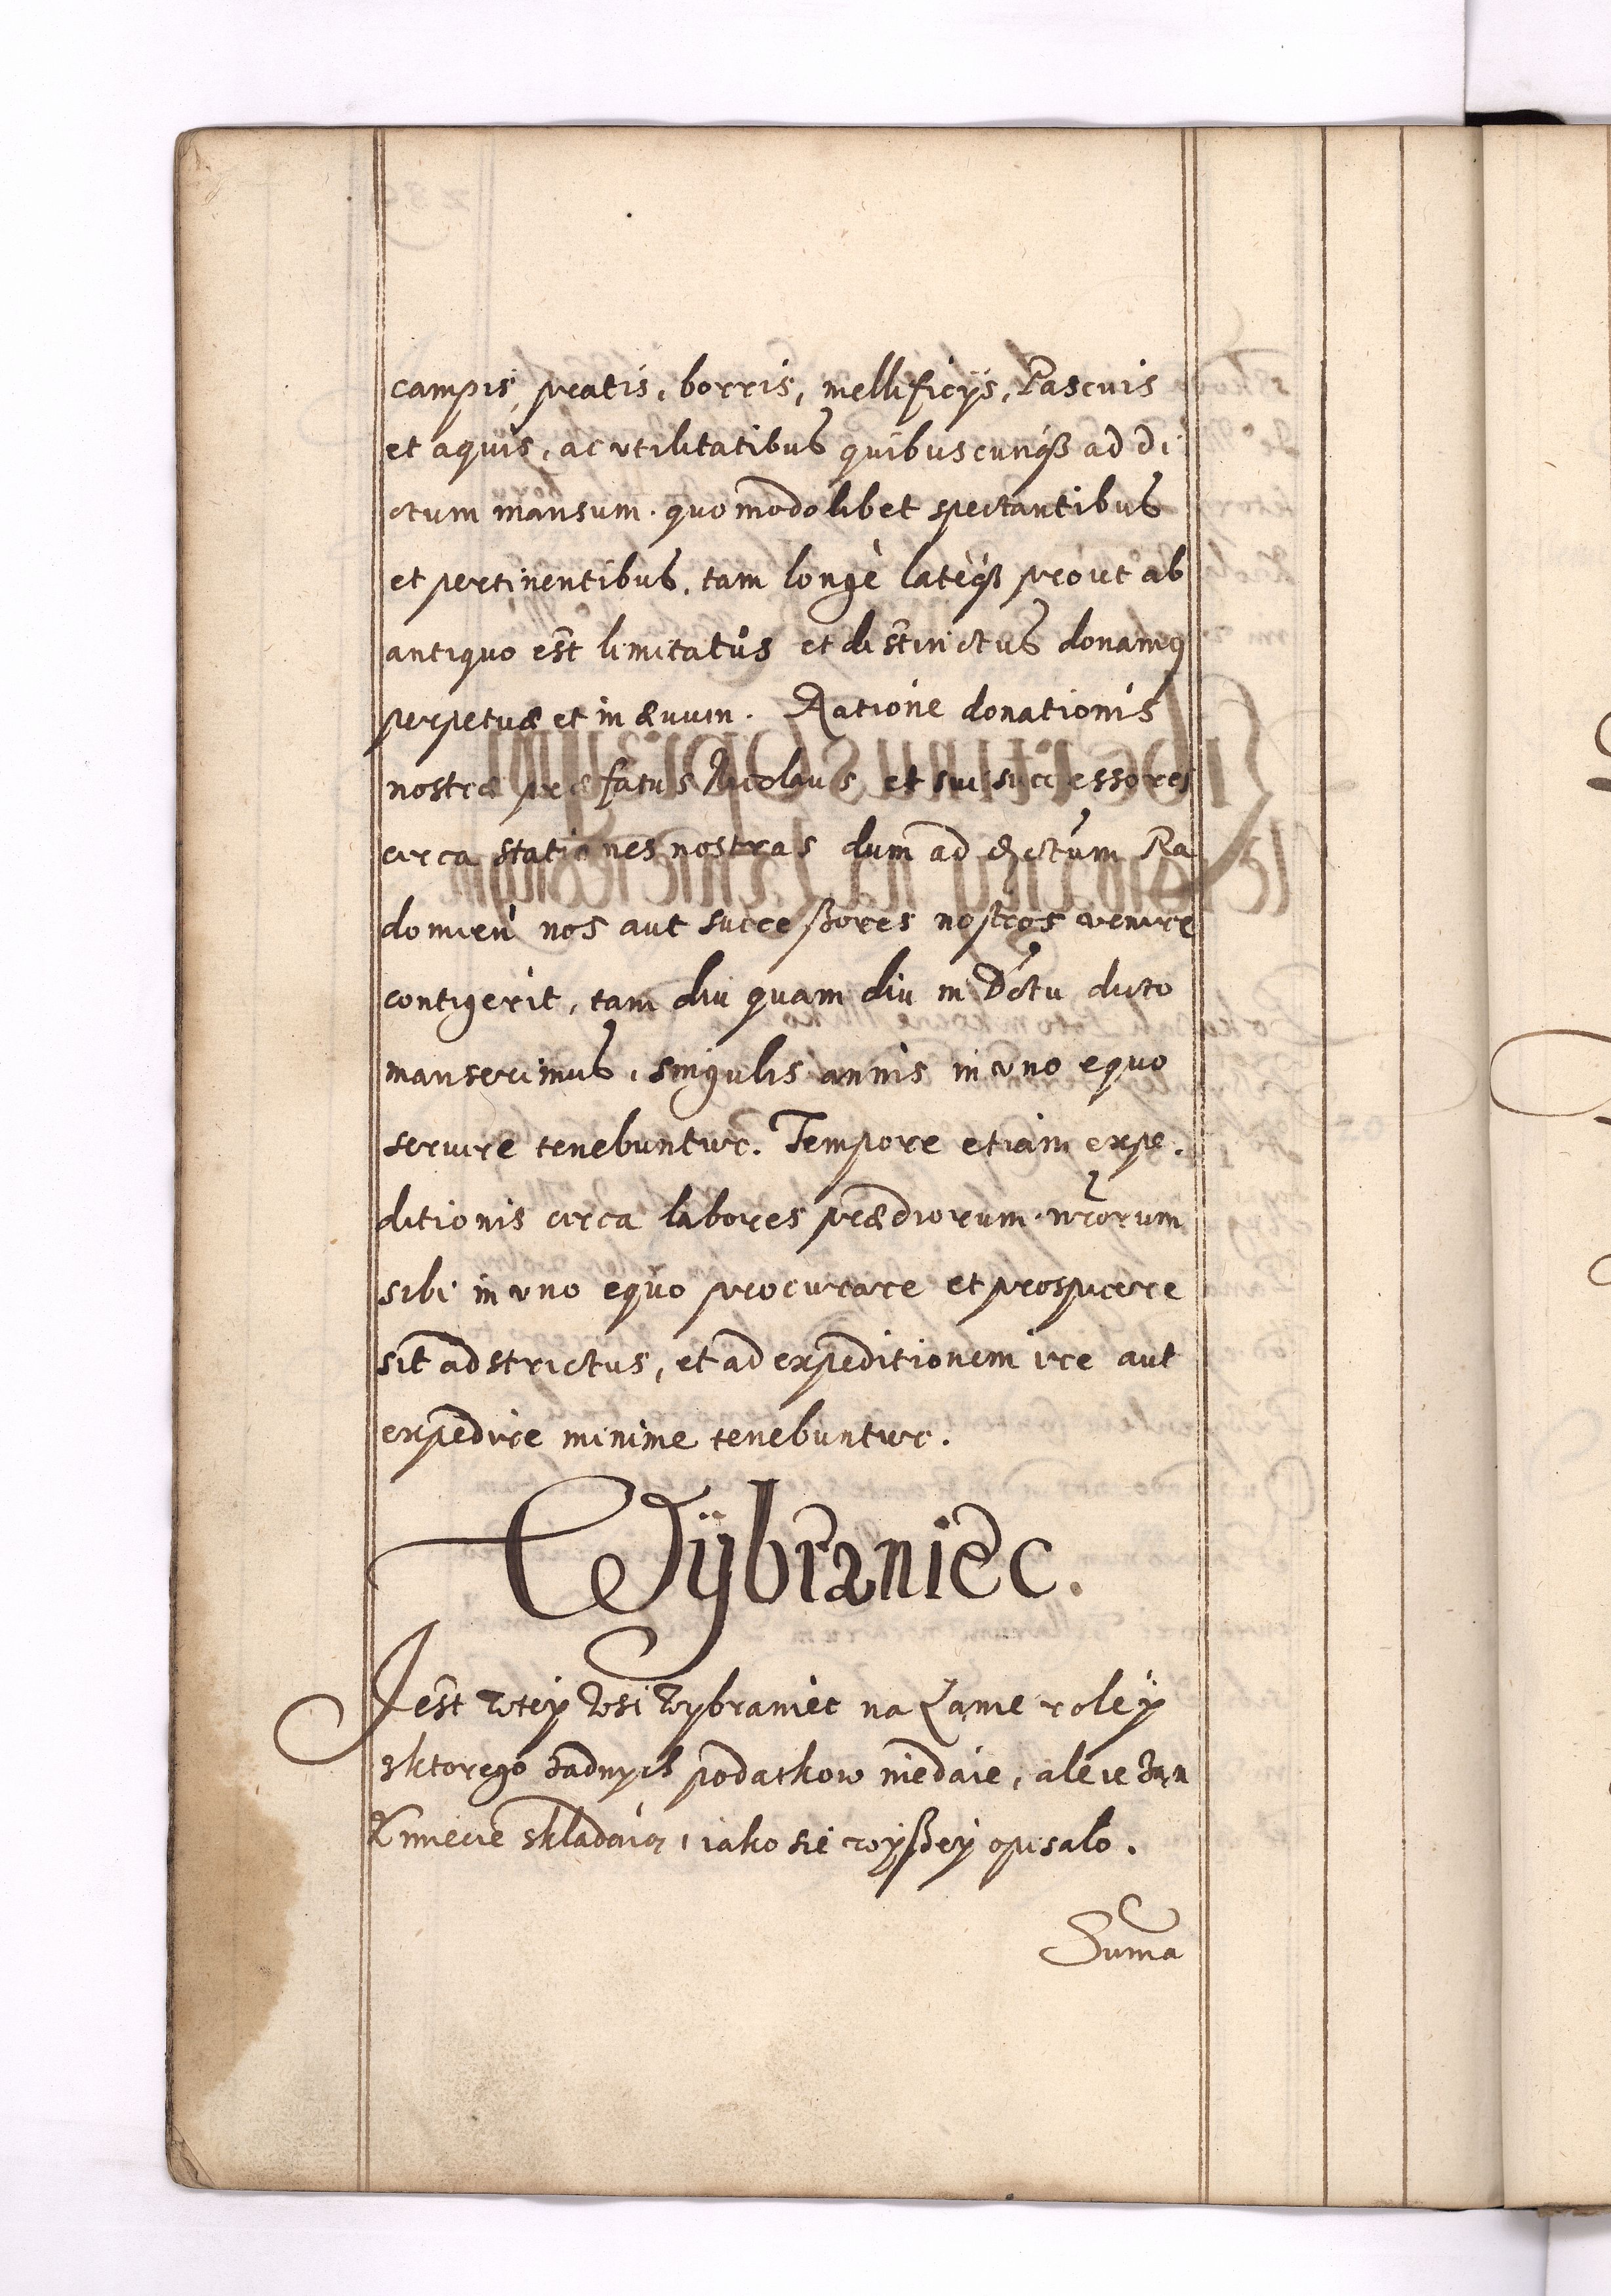 campis, pratis, borris, mellificijs, Pascuis
et aquis, ac vtilitatibus quibuscunqȝ ad di
ctum mansum. quomodolibet spectantibus
et pertinentibus, tam longè latèqȝ prout ab
antiquo est limitatus et distinctus donamꝰ
perpetuæ et in æuum. Ratione donationis
nostræ præfatus Nicolaus et sui successores
circa stationes nostras dum ad dictum Ra
domień nos aut successores nostros venire
contigerit, tam diu quam diu in dicto
manserimus, singulis annis in vno equo
seruire tenebuntur. Tempore etiam expe.
ditionis circa labores prædiorum nrorum
sibi in vno equo procurare et prospicere
sit adstrictus, et ad expeditionem ire aut
expedire minime tenebuntur.
Wÿbraniec.
Jest wteÿ wsi wÿbraniec na Łanie roleÿ
zktorego żadnych podatkow niedaie, ale ie zań
Kmiecie składaią, iako sie wÿßeÿ opisało.
Suma